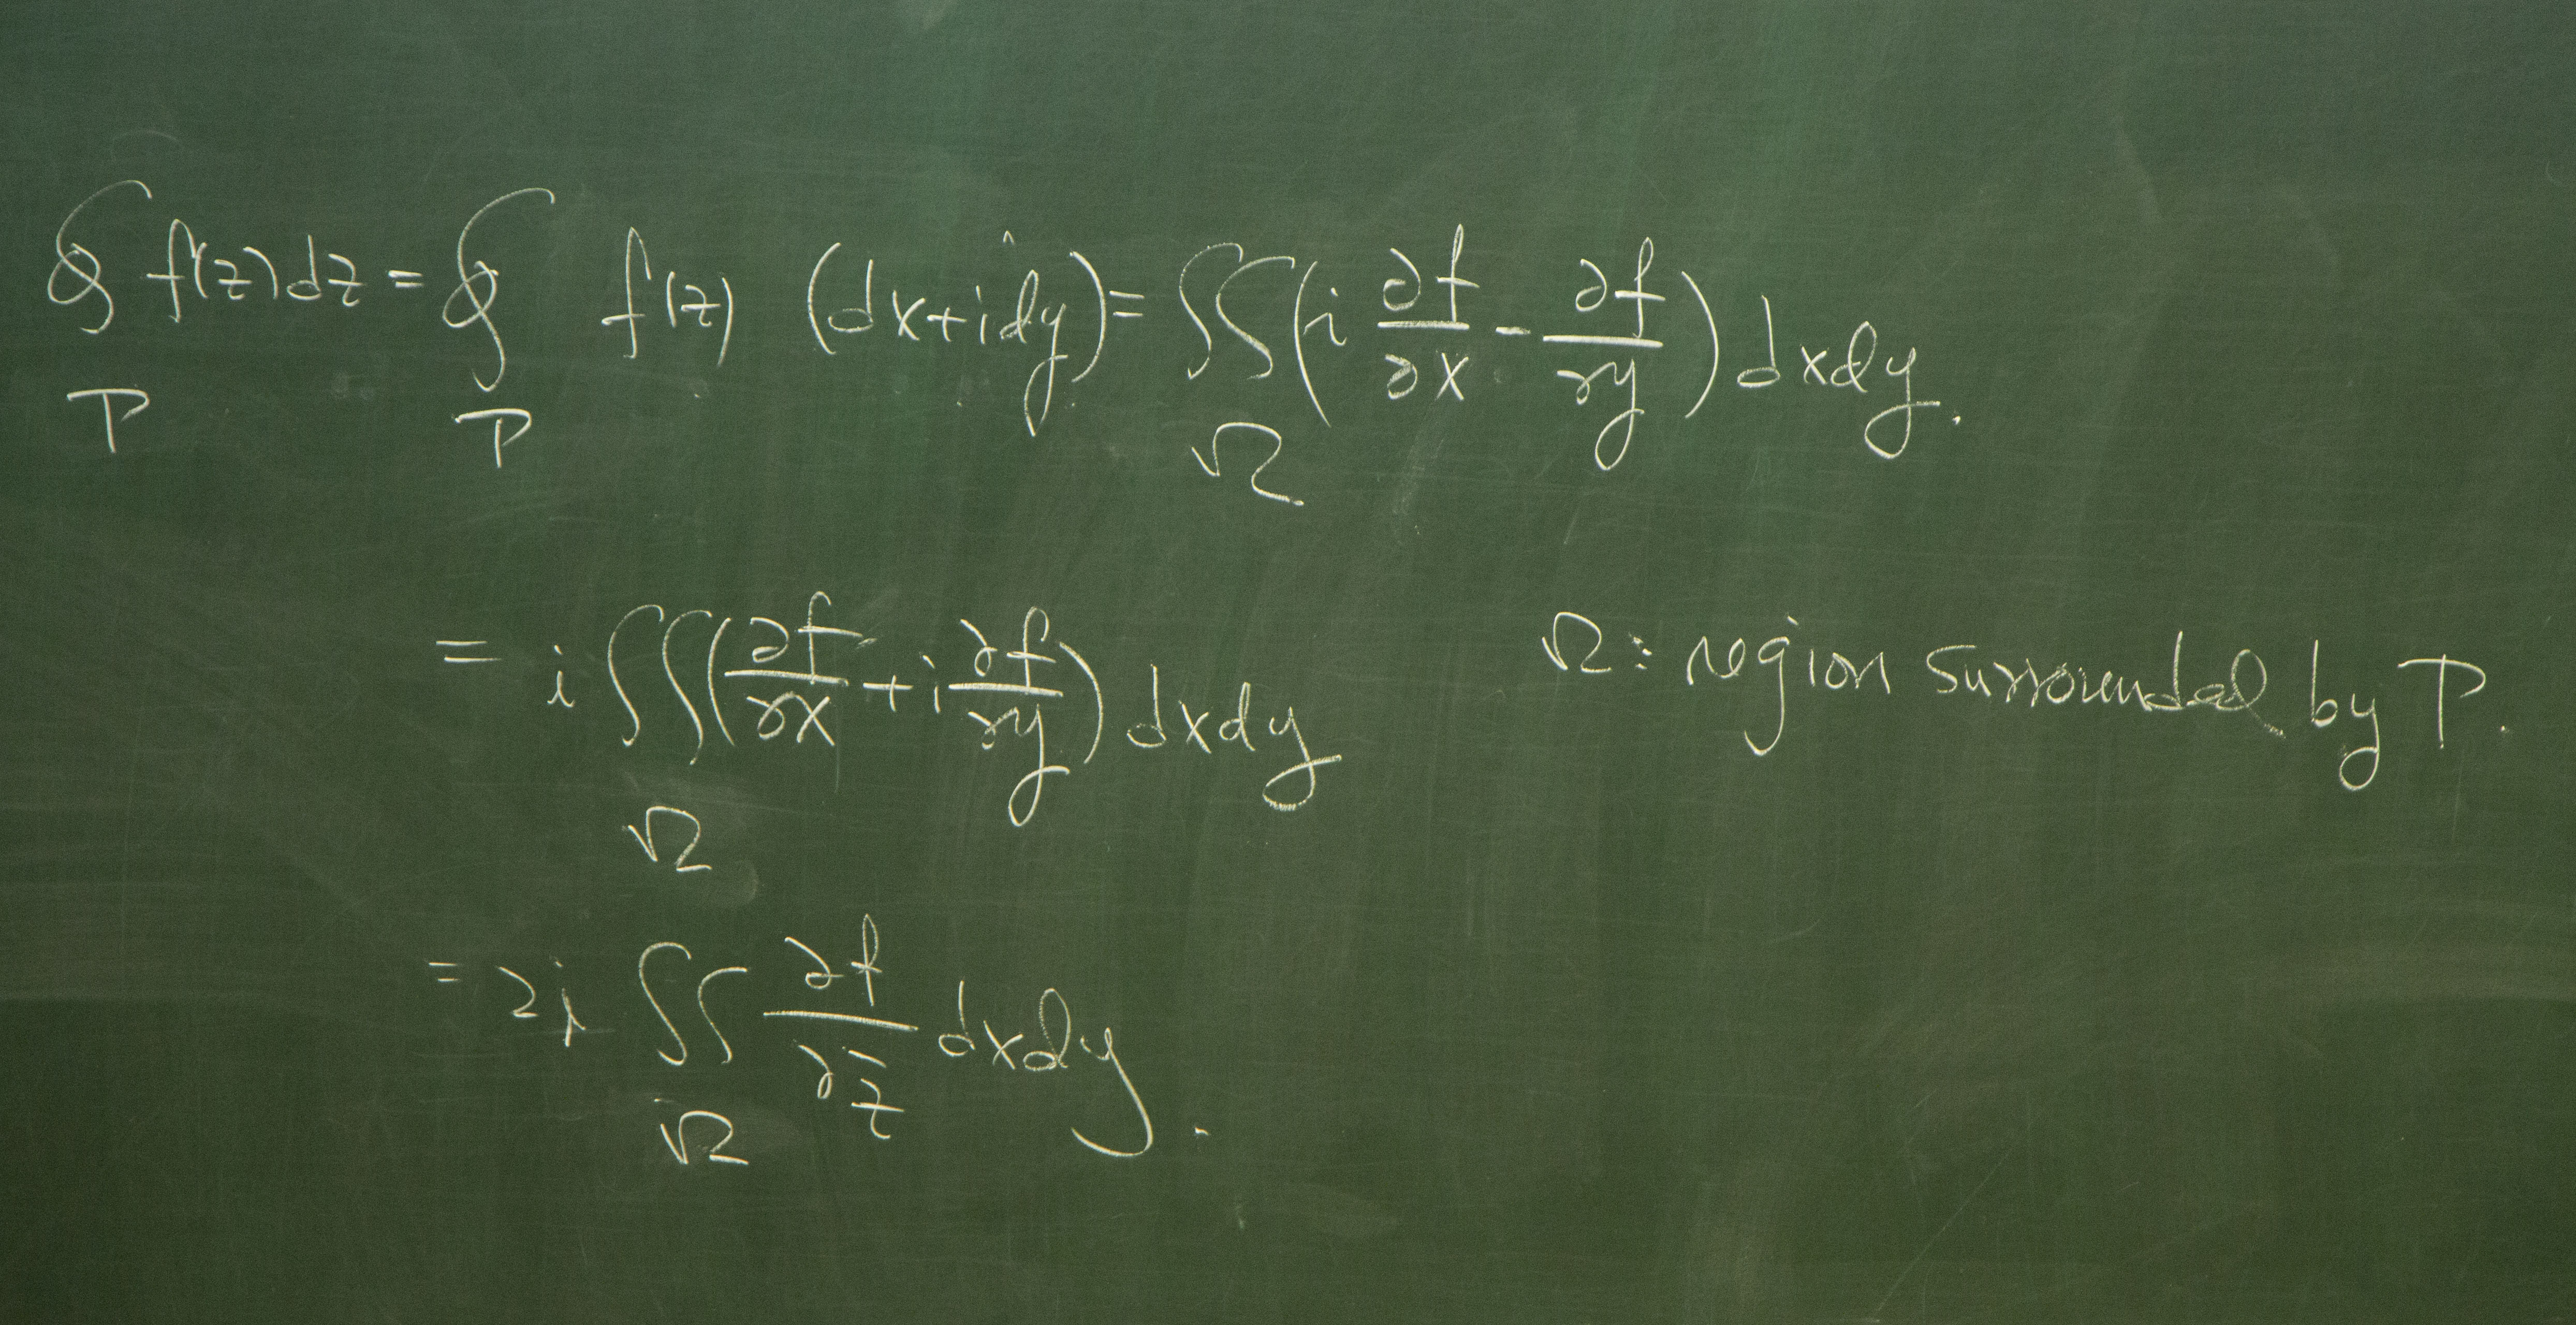 ∮_Γ f(z)dz = ∮_Γ f(z) (dx+idy) = ∬_Ω (i ∂f/∂x - ∂f/∂y) dxdy.
= i ∬_Ω (∂f/∂x + i ∂f/∂y) dxdy
Ω: region surrounded by Γ.
= 2i ∬_Ω ∂f/∂z̄ dxdy.